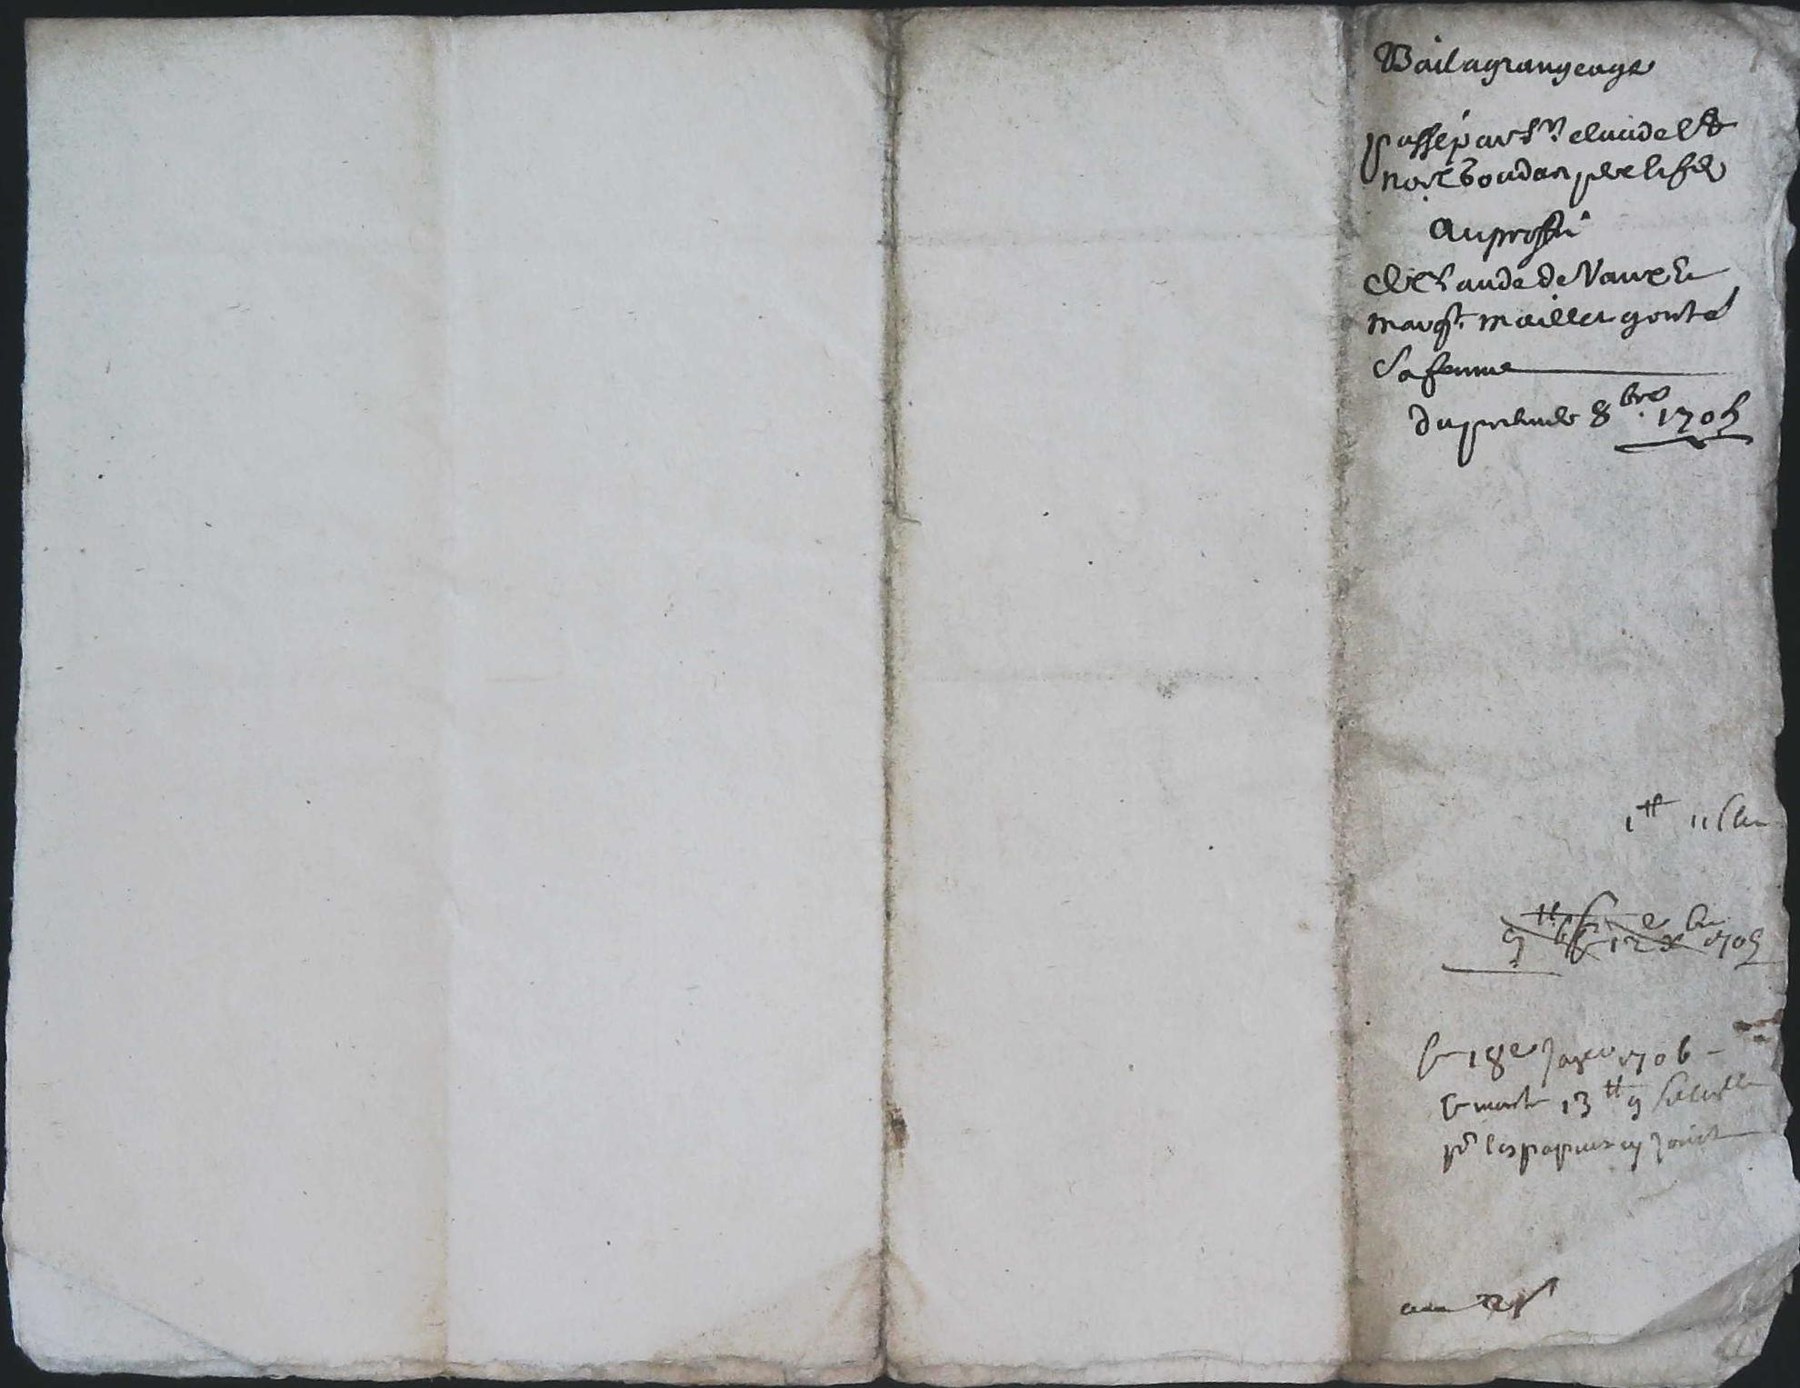 Bail a grangeage
passé par Sr. claude et
Noel boudon pere et fils
Au profit
de Claude de Vaux et
margte. maillet gonte
Sa femme
du premier 8bre. 1705
1tt 11 s
9tt 12e xbre 1705
le 18e janvr 1706
13tt 9
pr les papiers cy joinct